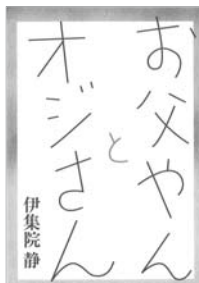 お父やん
と
オジさん
伊集院 静